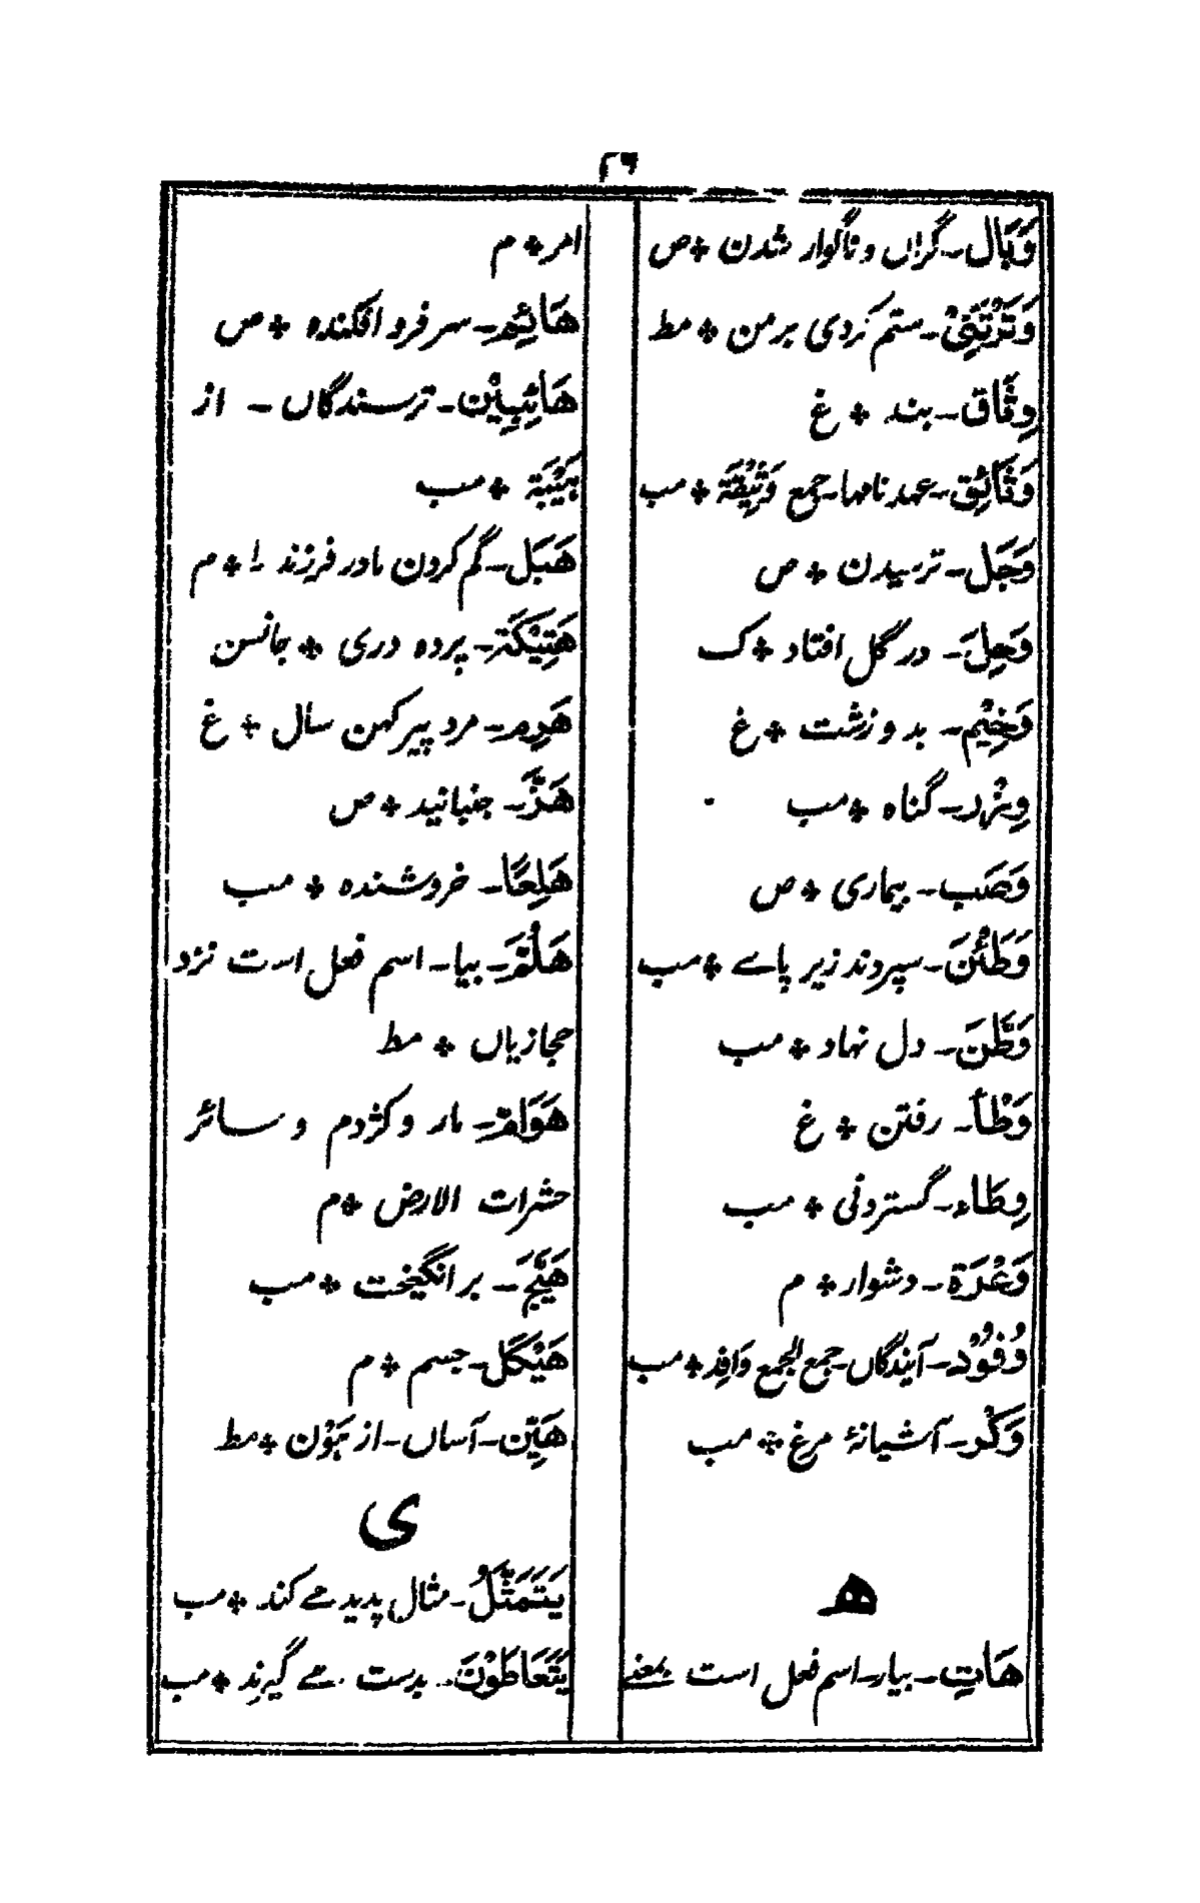 ۲۶
وَبَال۔گراں و ناگوار شدن ⁜ ص
وَتَرْتَنِیْ۔ستم کردی برمن ⁜ مط
وِثَاق۔بند ⁜ غ
وَثَائِق۔عہد نامہا۔جمع وَثِیْقَة ⁜ مب
وَجَل۔ترسیدن ⁜ ص
وَحِلَ۔ در گل افتاد ⁜ ک
وَخِیْم۔ بد و زشت ⁜ غ
وِزْر۔گناہ ⁜ مب
وَصَب۔ بیماری ⁜ ص
وَطَأْنَ۔سپردند زیر پاے ⁜ مب
وَطَّنَ۔ دل نہاد ⁜ مب
وَطْأ۔ رفتن ⁜ غ
وِطَاء۔گستردنی ⁜ مب
وَعْرَة۔دشوار ⁜ م
وُفُوْد۔آیندگاں۔جمع الجمع وَافِد ⁜ مب
وَكْر۔آشیانۂ مرغ ⁜ مب
ھ
هَاتِ۔بیار۔اسم فعل است بمعنے
امر ⁜ م
هَائِم۔سر فرو افکنده ⁜ ص
هَائِبِیْن۔ترسندگاں ۔ از
هَیْبَة ⁜ مب
هَبَل۔گم کردن مادر فرزند را ⁜ م
هَتِیْكَة۔پرده دری ⁜ جانسن
هَرِم۔مرد پیر کهن سال ⁜ غ
هَزَّ۔ جنبانید ⁜ ص
هَلِعًا۔ خروشنده ⁜ مب
هَلُمَّ۔بیا۔اسم فعل است نزد
حجازیاں ⁜ مط
هَوَامّ۔مار و کژدم و سائر
حشرات الارض ⁜ م
هَیَّجَ۔ بر انگیخت ⁜ مب
هَیْكَل۔جسم ⁜ م
هَیِّن۔آساں۔از هَوْن ⁜ مط
ی
یَتَمَثَّلُ۔مثال پدید مے کند ⁜ مب
یَتَعَاطَوْنَ۔ بدست مے گیرند ⁜ مب